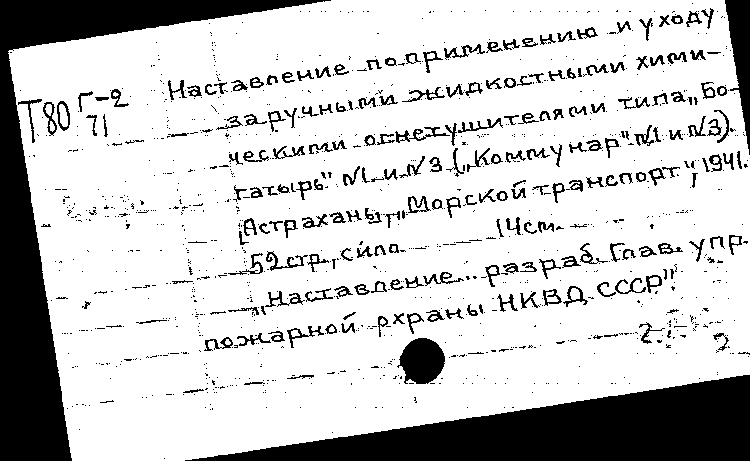 Т80 Г-2
71
Наставление по применению и уходу
за ручными жидкостными хими-
ческими огнетушителями типа „Бо-
гатырь" №1 и №3 („Коммунар" №1 и №3).
[Астрахань], „Морской транспорт", 1941.
52 стр., силл. 14см.
„Наставление... разраб. Глав. упр.
пожарной охраны НКВД СССР".
2